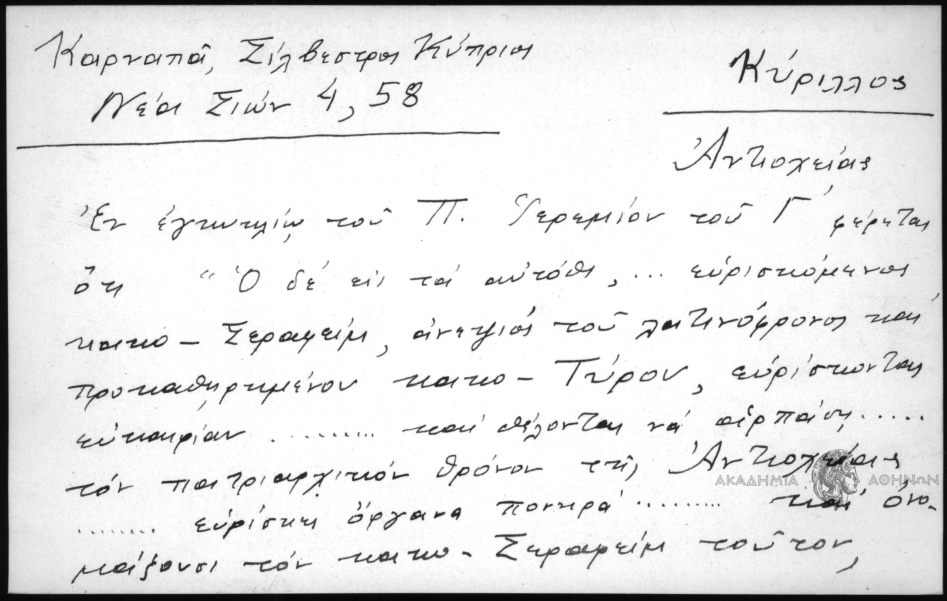 Καρναπᾶ, Σίλβεστρος Κύπριος
Νέα Σιών 4, 58
Κύριλλος
Ἀντιοχείας
Ἐν ἐγκυκλίῳ τοῦ Π. Ἱερεμίου τοῦ Γ΄ φέρεται
ὅτι "Ὁ δέ εἰς τά αὐτόθι, ... εὑρισκόμενος
κακο-Σεραφείμ, ἀνεψιός τοῦ λατινόφρονος καί
προκαθῃρημένου κακο-Τύρου, εὑρίσκωντας
εὐκαιρίαν ......... καί θέλοντας νά ἁρπάσῃ .....
τόν πατριαρχικόν θρόνον τῆς Ἀντιοχείας
ΑΚΑΔΗΜΙΑ ΑΘΗΝΩΝ
........ εὑρίσκει ὄργανα πονηρά ........ καί ὀνο-
μάζουσι τόν κακο-Σεραφείμ τοῦτον,